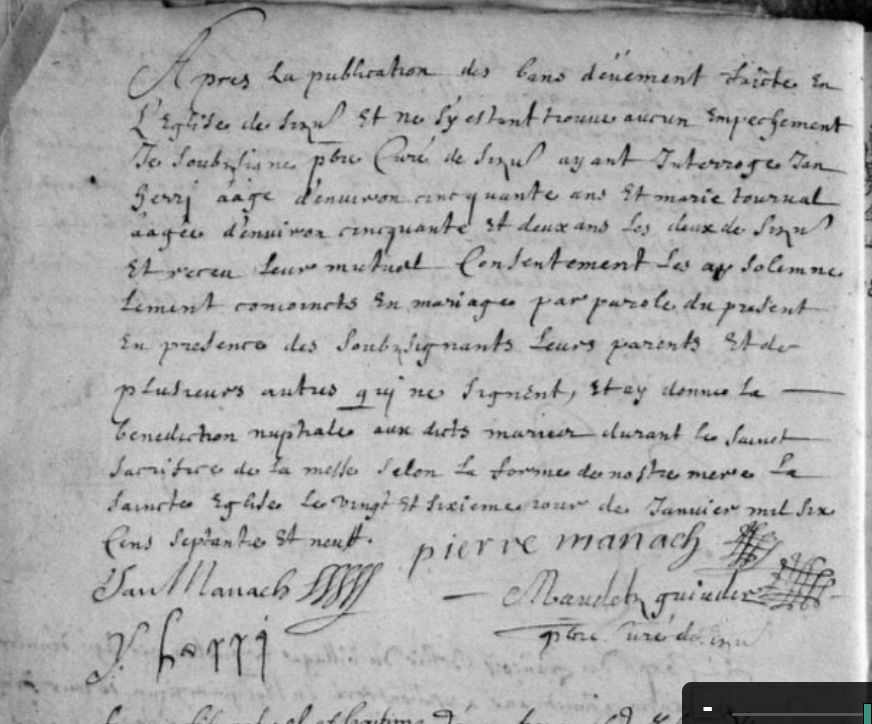 Apres La publication des bans deüement faicte En
L'Eglise de Sizun Et ne s'y estant trouue aucun Empechement
Je Soubzsigne pbre Curé de Sizun ayant Interroge Jan
herri aage d'enuiron cincquante ans Et marie tournal
aagée d'enuiron cincquante Et deux ans Les deux de Sizun
Et receu Leur mutuel Consentement Les ay Solemne
Lement conioincts En mariage par parole du present
En presence des Soubzsignants Leurs parents Et de
plusieurs autres qui ne Signent, Et ay donne La
benediction nuptiale aux dicts mariez durant le Sainct
Sacrifice de La messe Selon La forme de nostre mere La
Saincte Eglise Le vingt Et Sixieme iour de Januier mil Six
Cens Septante Et neuff.
pierre manach
Jan Manach
Maudetz guiuder
pbre Curé de Sizun
Y. harri